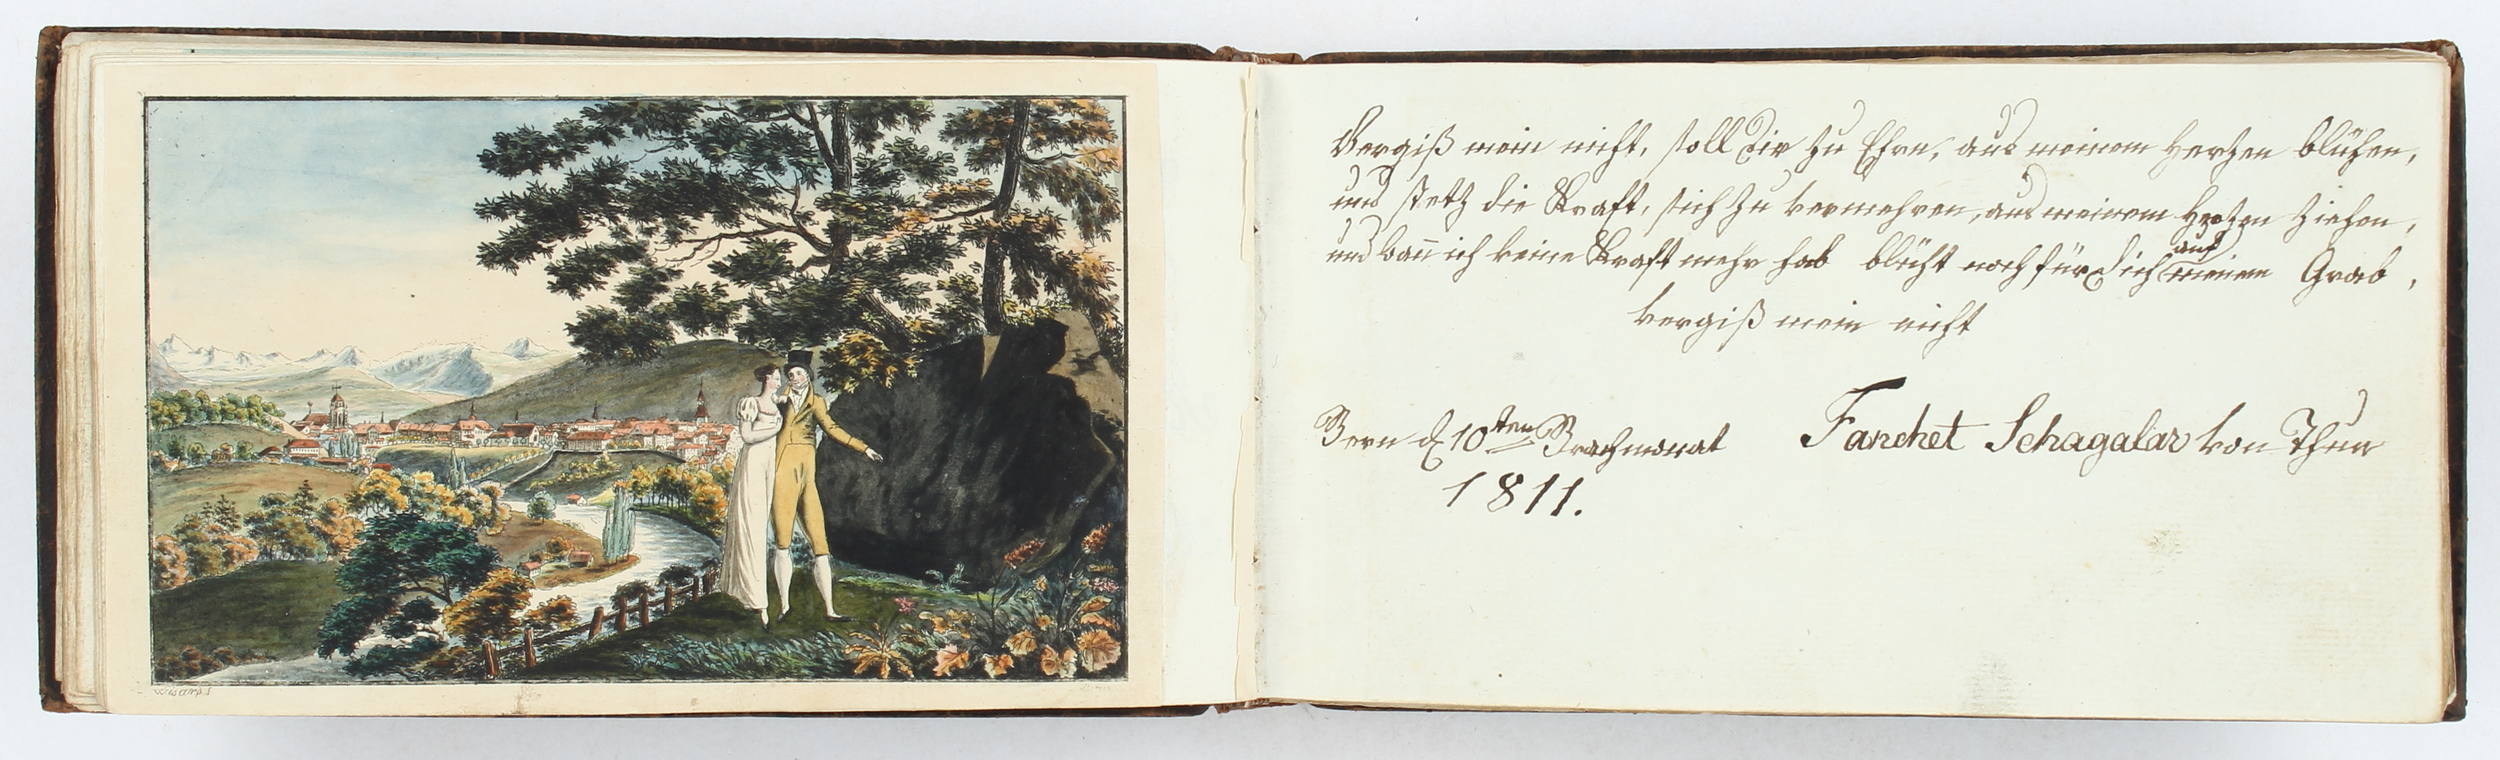 Vergiß mein nicht, soll Dir zu Ehre, aus meinem Hertzen blühen,
und stetz die Kraft, sich zu vermehren, aus meinem Hertzen ziehen,
und wann ich keine Kraft mehr hab blüht noch für Dich auf meinem Grab,
vergiß mein nicht
Bern d 10ten Brachmonat Fanchet Schagalar von Thun
1811.